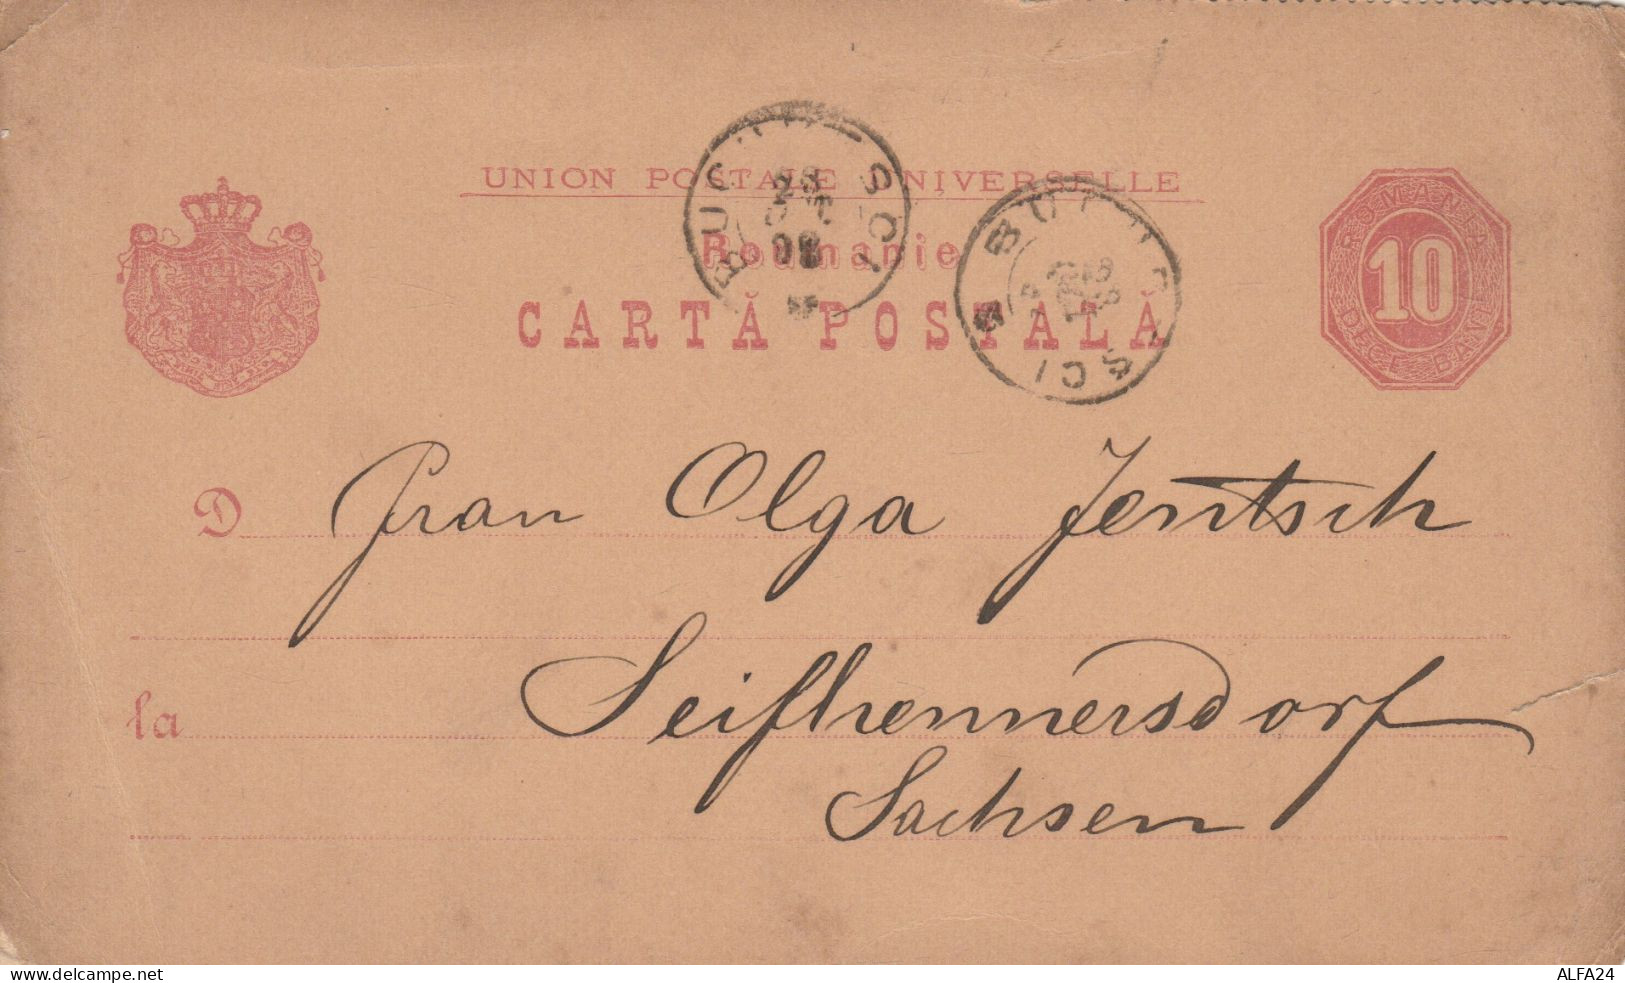 UNION POSTALE UNIVERSELLE
Roumanie
CARTĂ POSTALĂ
BUCURESCI
BUCURESCI
ROMANIA
10
DECE BANI
D Frau Olga Jentsch
la Seifhennersdorf
Sachsen
www.delcampe.net
ALFA24